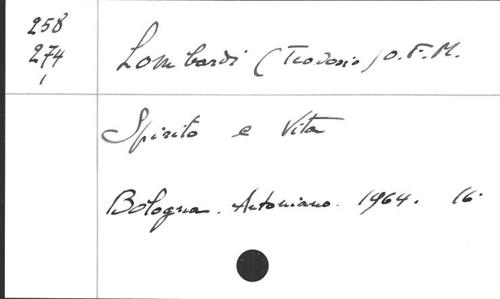 258
274
1
Lombardi (Teodosio) O.F.M.
Spirito e Vita
Bologna. Antoniano. 1964. 16°